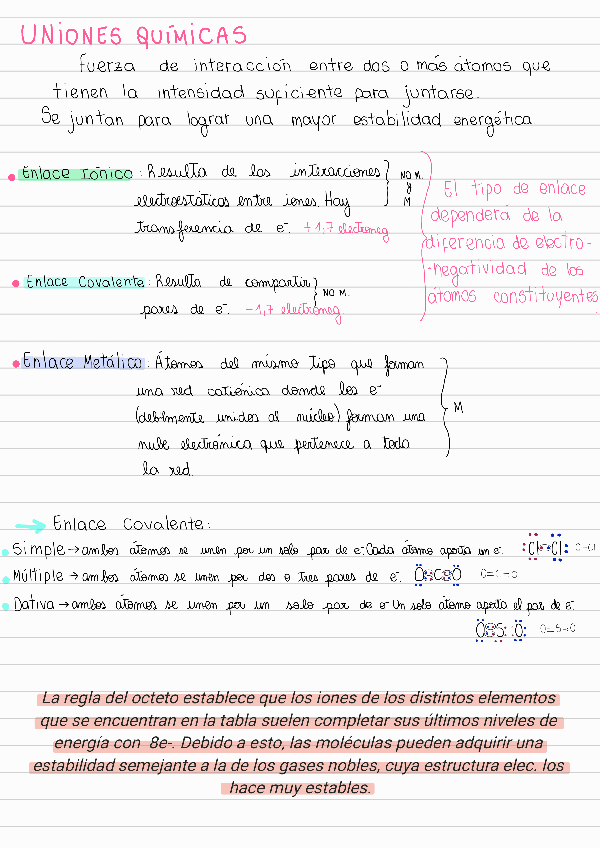 UNIONES QUÍMICAS
Fuerza de interacción entre dos o más átomos que
tienen la intensidad suficiente para juntarse.
Se juntan para lograr una mayor estabilidad energética
Enlace Iónico: Resulta de las interacciones
electroestáticas entre iones. Hay
transferencia de e-. +1,7 electroneg
NO M.
y
M
El tipo de enlace
dependerá de la
diferencia de electro-
-negatividad de los
átomos constituyentes.
Enlace Covalente: Resulta de compartir
pares de e-. -1,7 electroneg
NO M.
Enlace Metálico: Átomos del mismo tipo que forman
una red catiónica donde los e-
(debilmente unidos al núcleo) forman una
nube electrónica que pertenece a toda
la red.
M
→ Enlace Covalente:
Simple → ambos átomos se unen por un solo par de e-. Cada átomo aporta un e-. Cl Cl Cl-Cl
Múltiple → ambos átomos se unen por dos o tres pares de e-. O C O O=C=O
Dativa → ambos átomos se unen por un solo par de e-. Un solo átomo aporta el par de e-.
O S O O=S→O
La regla del octeto establece que los iones de los distintos elementos
que se encuentran en la tabla suelen completar sus últimos niveles de
energía con 8e-. Debido a esto, las moléculas pueden adquirir una
estabilidad semejante a la de los gases nobles, cuya estructura elec. los
hace muy estables.